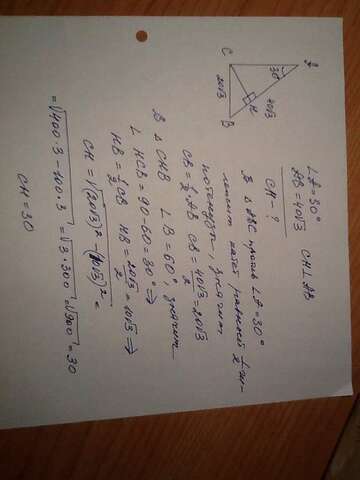 ∠A=30°
AB=40√3 CH⊥AB
CH-?
В △ABC против ∠A=30°
лежит катет равный 1/2 ги-
потенузы, значит
CB=1/2 AB CB=40√3/2=20√3
В △CHB ∠B=60°, значит
∠HCB=90-60=30° ⇒
HB=1/2 CB HB=20√3/2=10√3 ⇒
CH=√(20√3)²-(10√3)²=
=√400·3-100·3=√3·300=√900=30
CH=30
C
A
30°
20√3
40√3
H
B